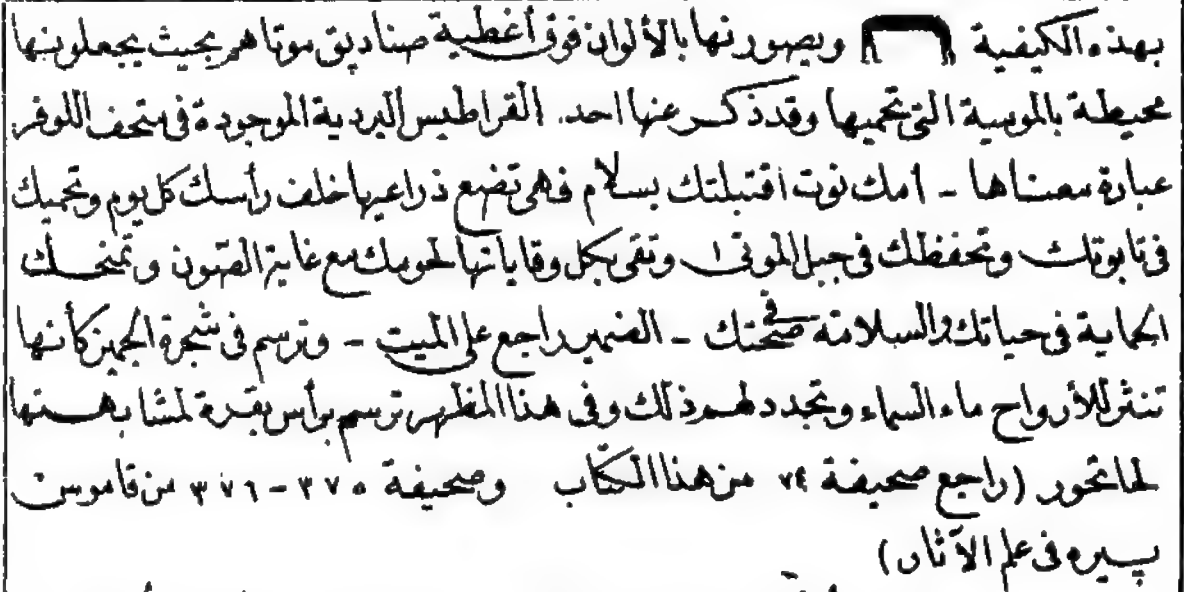 بهذه الكيفية ويصورنها بالألوان فوق أغطية صناديق موتاهم بحيث يجعلونها
محيطة بالموسية التى تحميها وقد ذكر عنها احد. القراطيس البردية الموجودة فى متحف اللوفر
عبارة معناها - امك نوت اقتبلتك بسلام فهى تضع ذراعيها خلف رأسك كل يوم وتحميك
فى تابوتك وتحفظك فى جبل الموتى ا وتقى بكل وقاياتها لحومك مع غاية الصون وتمنحك
الحماية فى حياتك والسلامة فى صحتك - الضمير راجع على الميت - وترسم فى شجرة الجميز كأنها
تنثر للأرواح ماء السماء وتجدد لهم ذلك وفى هذا المظهر ترسم برأس بقرة لمشابهتها
لهاتحور (راجع صحيفة ٧٤ من هذا الكتاب وصحيفة ٣٧٥ - ٣٧٦ من قاموس
پيره فى علم الآثار)